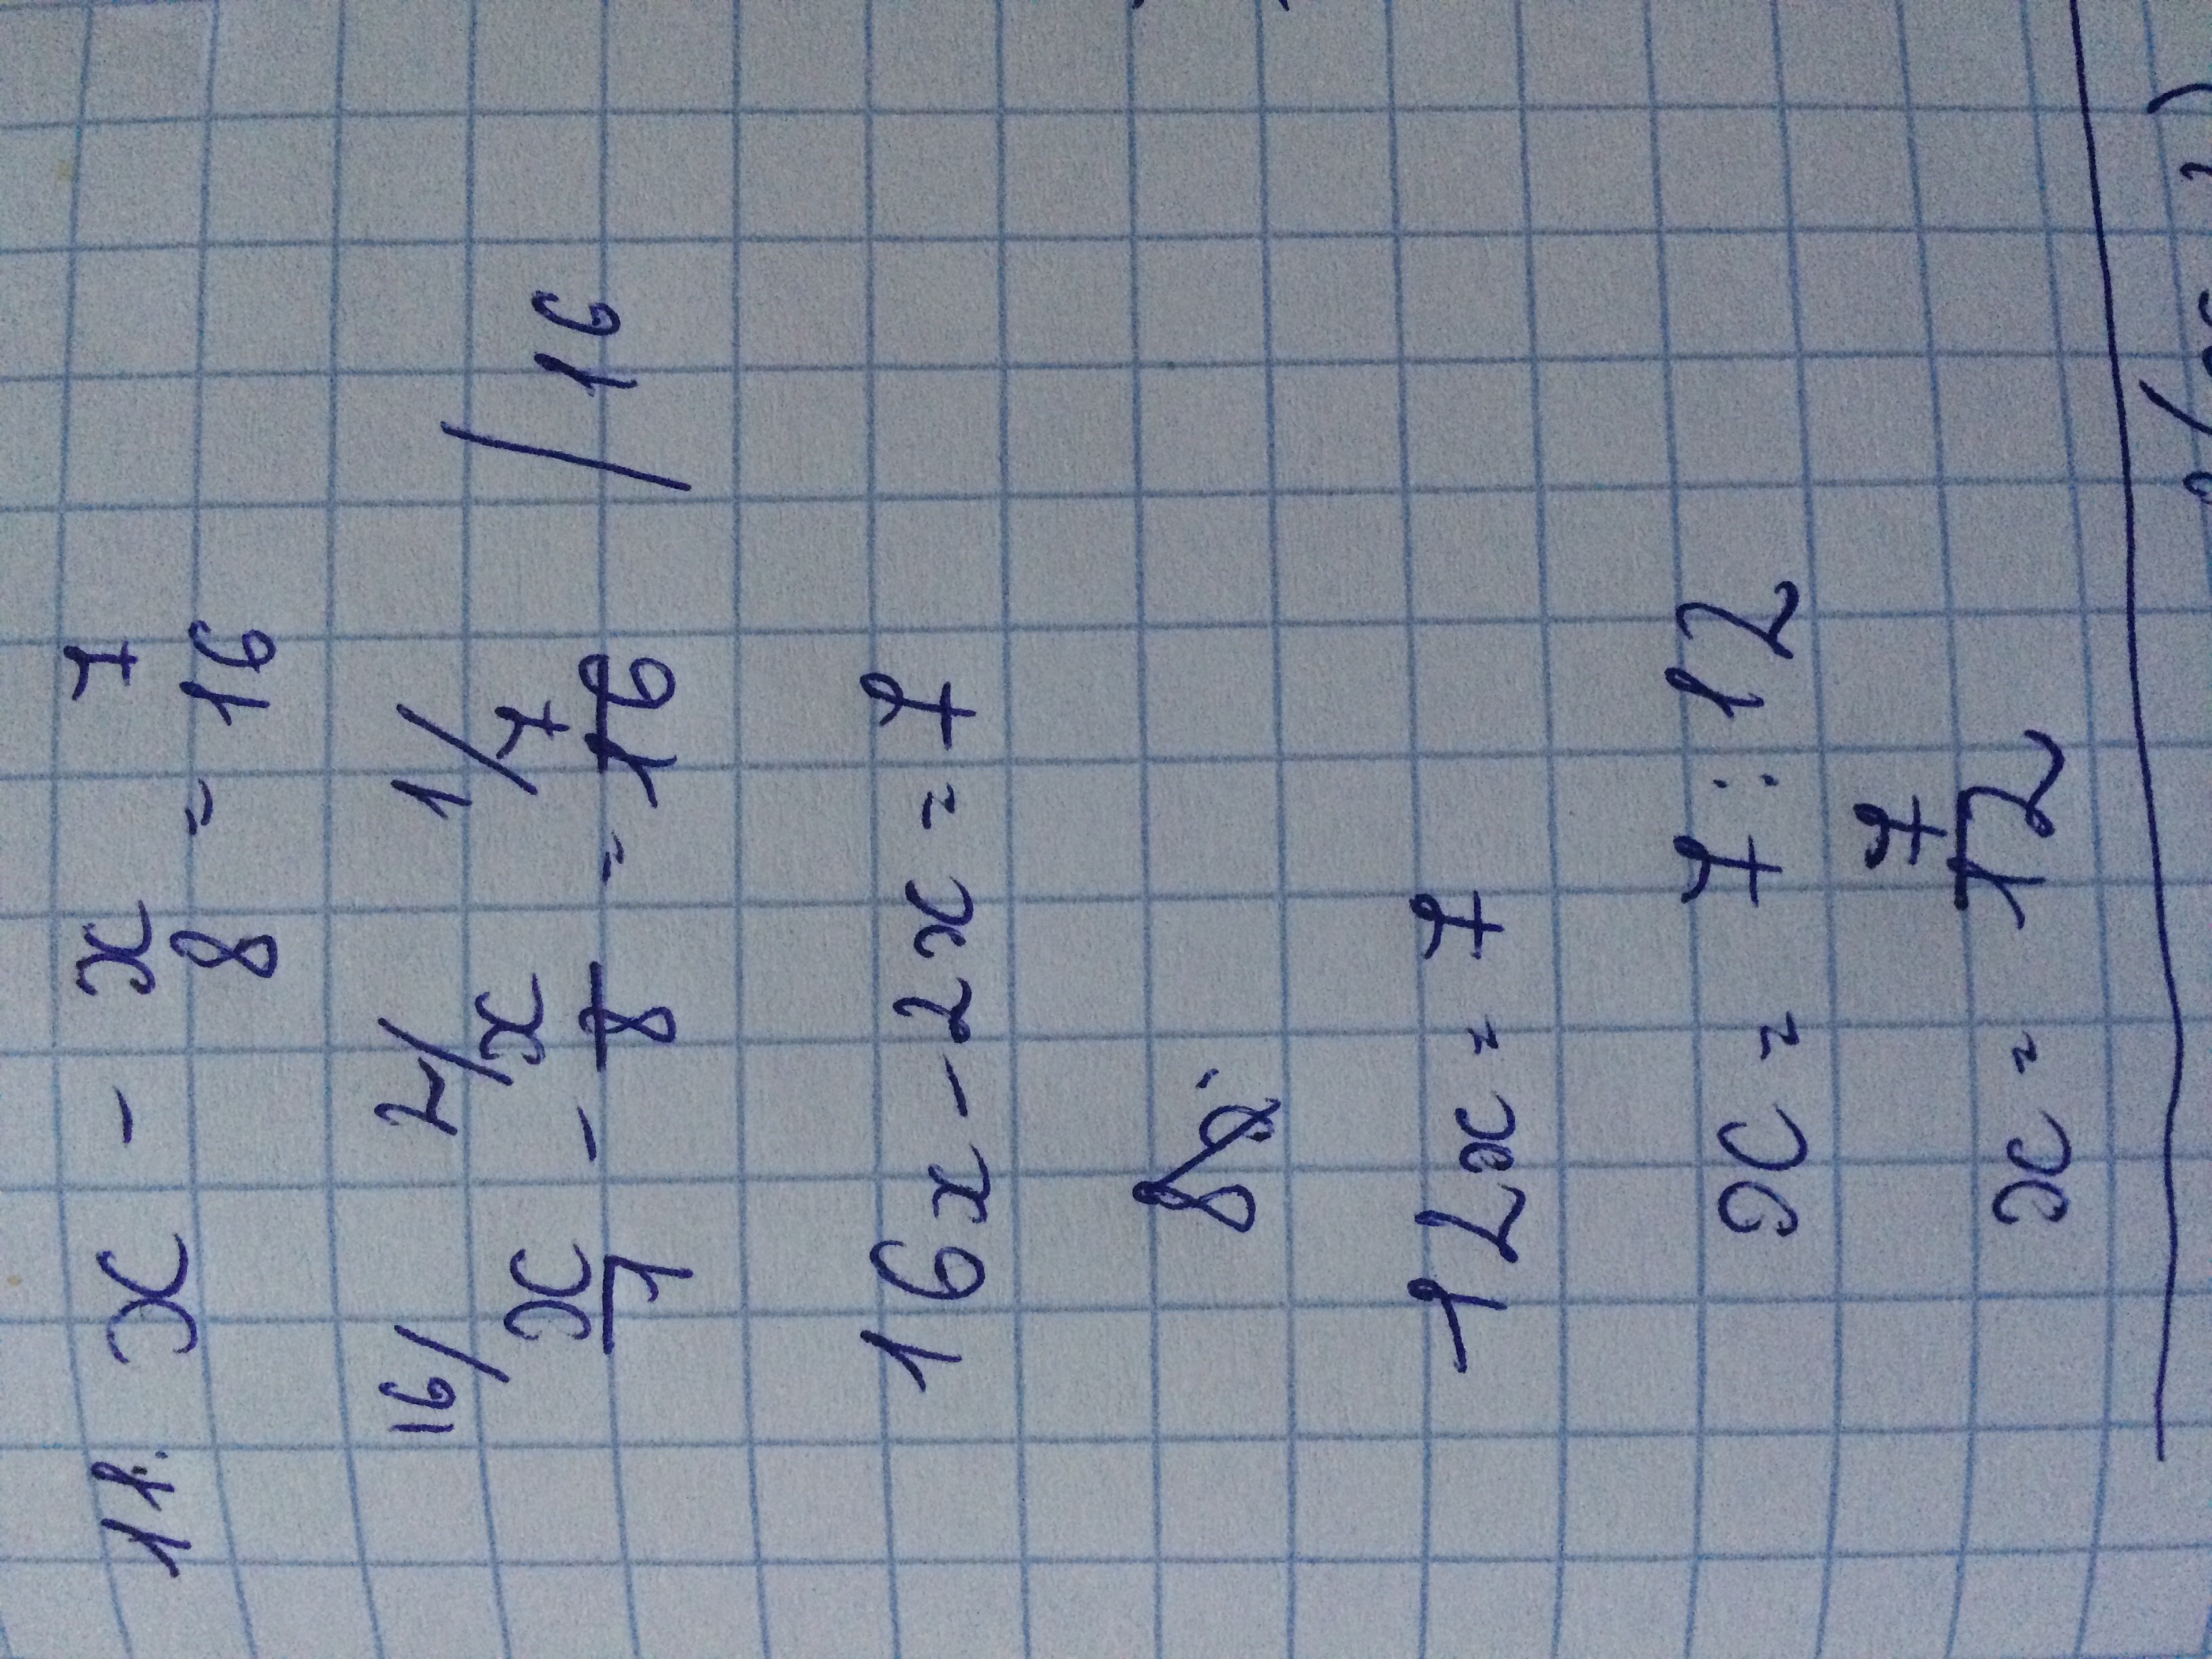 11. x - x/8 = 7/16
16/ x/1 - 2/ x/8 = 1/ 7/16 / 16
16x - 2x = 7
12x = 7
x = 7 : 12
x = 7/12